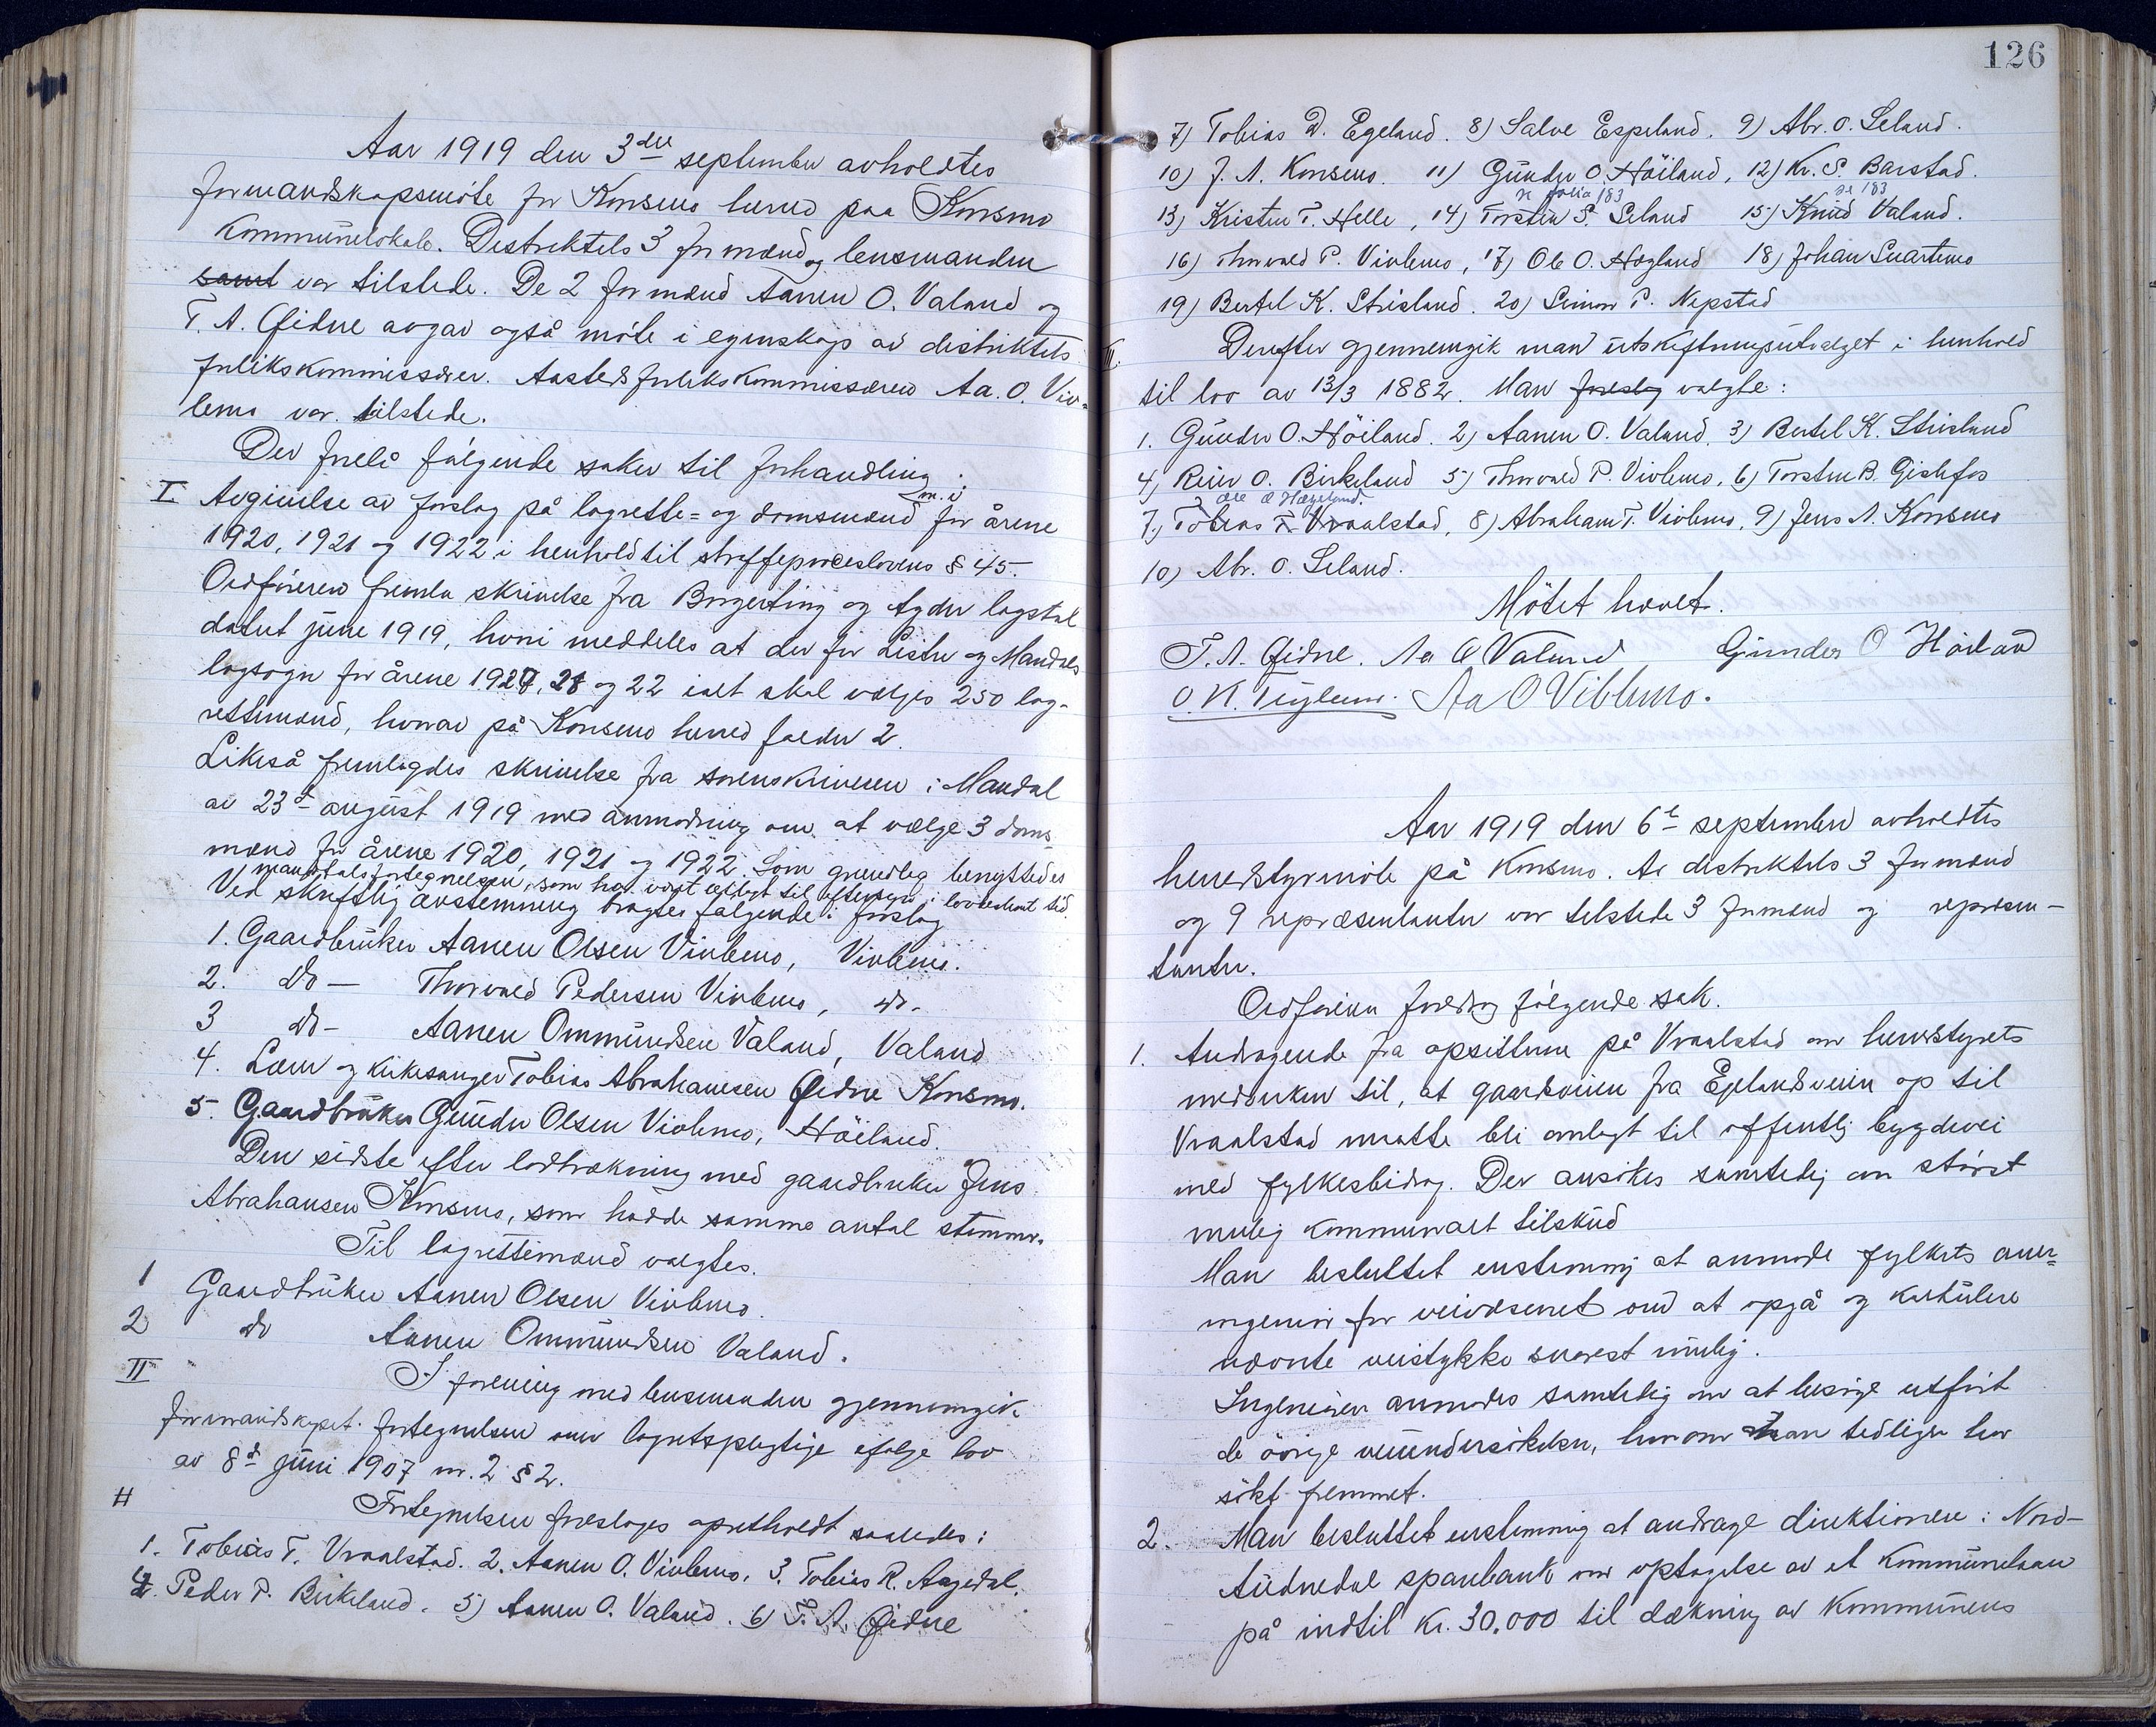 Aar 1919 den 3die september avholdtes
formandskapsmöte for Konsmo herred paa Konsmo
Kommunelokale. Distriktets 3 formænd og lensmanden
samt var tilstede. De 2 formænd Aanen O. Valand og
T. A. Øidne avgav også möte i egenskap av distriktets
forlikskommissærer. Aasteds forlikskommissæren Aa. O. Viv-
lemo var tilstede.
Der forelå følgende saker til forhandling:
I Avgivelse av forslag på lagrette- og domsmænd m.v. for årene
1920, 1921 og 1922 i henhold til straffeproceslovens § 45.
Ordföreren fremla skrivelse fra Borgerting og Agder lagstol
datert juni 1919, hvori meddeles at der for Lister og Mandals
lagsogn for årene 1920, 21 og 22 ialt skal vælges 250 lag-
rettemænd, hvorav på Konsmo herred falder 2.
Likeså fremlagdes skrivelse fra sorenskriveren i Mandal
av 23d august 1919 med anmodning om at vælge 3 doms-
mænd for årene 1920, 1921 og 1922. Som grundlag benyttedes
mandtalsfortegnelsen, som har vært utlagt til eftersyn i lovbestemt tid.
Ved skriftlig avstemning bragtes følgende i forslag
1. Gaardbruker Aanen Olsen Vivlemo, Vivlemo.
2. Do — Thorvald Pedersen Vivlemo, do.
3 do - Aanen Ommundsen Valand, Valand
4. Lærer og kirkesanger Tobias Abrahamsen Øidne Konsmo.
5. Gaardbruker Gunder Olsen Vivlemo, Höiland.
Den sidste efter lodtrækning med gaardbruker Jens
Abrahamsen Konsmo, som hadde samme antal stemmer.
Til lagrettemænd valgtes.
1 Gaardbruker Aanen Olsen Vivlemo.
2 do Aanen Ommundsen Valand.
II I forening med lensmanden gjennemgik
formandskapet fortegnelsen over lagretspligtige ifølge lov
av 8d juni 1907 nr. 2 § 2.
# Fortegnelsen foreslages opretholdt saaledes:
1. Tobias T. Vraalstad. 2. Aanen O. Vivlemo. 3. Tobias R. Aagedal.
4. Peder P. Birkeland. 5) Aanen O. Valand. 6) T. A. Øidne
126
7) Tobias D. Egeland. 8) Salve Espeland. 9) Abr. O. Seland.
10) J. A. Konsmo. 11) Gunder O. Höiland, 12) Kr. S. Barstad.
se folio 183 se 183
13) Kristen T. Helle, 14) Torsten S. Seland 15) Knud Valand.
16) Thorvald P. Vivlemo, 17) Ole O. Hægland 18) Johan Snartemo
19) Bertel K. Strisland. 20) Simon P. Nepstad
III. Derefter gjennemgik man utskiftningsutvalget i henhold
til lov av 13/3 1882. Man foreslog valgte:
1. Gunder O. Höiland. 2) Aanen O. Valand. 3) Bertel K. Strisland
4) Reier O. Birkeland 5) Thorvald P. Vivlemo, 6) Torsten B. Gislefos
Ole O Hægeland.
7) Tobias T. Vraalstad, 8) Abraham T. Vivlemo, 9) Jens A. Konsmo
10) Abr. O. Seland.
Mötet hævet.
T. A. Øidne. Aa O Valand Gunder O Höiland
O. K. Aa O Vivlemo.
Aar 1919 den 6te september avholdtes
herredstyrmöte på Konsmo. Av distriktets 3 formænd
og 9 repræsentanter var tilstede 3 formænd og repræsen-
tanter.
Ordföreren foredrog følgende sak.
1. Andragende fra opsitterne på Vraalstad om herredstyrets
medvirken til, at gaardsveien fra Egelandsveien op til
Vraalstad maatte bli omlagt til offentlig bygdevei
med fylkesbidrag. Der ansökes samtidig om störst
mulig kommunalt tilskud
Man besluttet enstemmig at anmode fylkets over-
ingeniör for veivæsenet om at opgå og kartulere
nævnte veistykke snarest mulig.
Ingeniören anmodes samtidig om at besörge utfört
de övrige veiundersökelser, hvorom man tidligere har
sökt fremmet.
2. Man besluttet enstemmig at andrage direktionen i Nord-
Audnedal sparebank om optagelse av et kommunelaan
på indtil Kr. 30.000 til dækning av kommunens